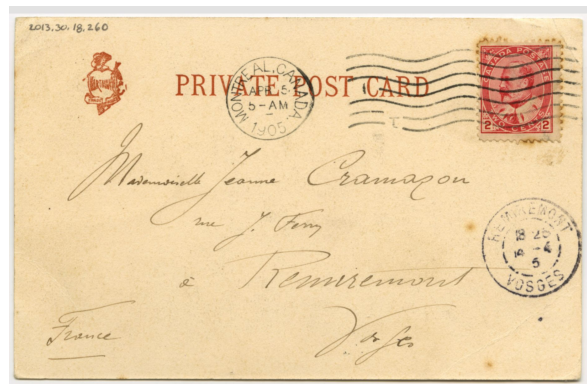 2013.30.18.260
PRIVATE POST CARD
MONTREAL, CANADA.
APR 5
5-AM
1905
CANADA POSTAGE
2 TWO CENTS 2
Mademoiselle Jeanne Cramazon
rue J. Ferry
à Remiremont
Vosges
France
REMIREMONT
18 4
5
VOSGES